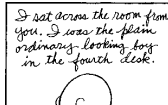 I sat across the room from
you. I was the plain
ordinary looking boy
in the fourth desk.